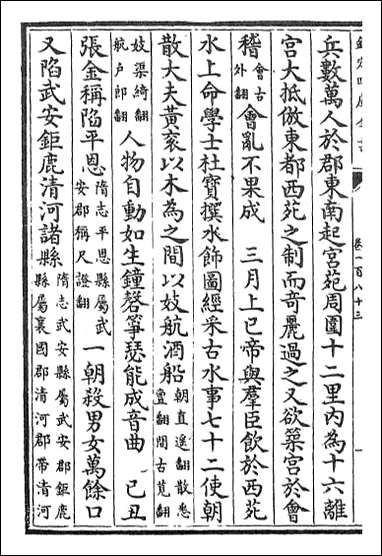 欽定四庫全書
卷一百八十三
兵數萬人於郡東南起宮苑周圍十二里内為十六離
宮大抵倣東都西苑之制而竒麗過之又欲築宮於會
稽會古外翻會亂不果成　三月上巳帝與羣臣飲於西苑
水上命學士杜寶撰水飾圖經采古水事七十二使朝
散大夫黃衮以木為之間以妓航酒船朝直遥翻散悉亶翻間古莧翻
妓渠綺翻航户郎翻人物自動如生鐘磬箏瑟能成音曲　己丑
張金稱陷平恩隋志平恩縣屬武安郡稱尺證翻一朝殺男女萬餘口
又陷武安鉅鹿清河諸縣隋志武安縣屬武安郡鉅鹿縣屬襄國郡清河郡帶清河